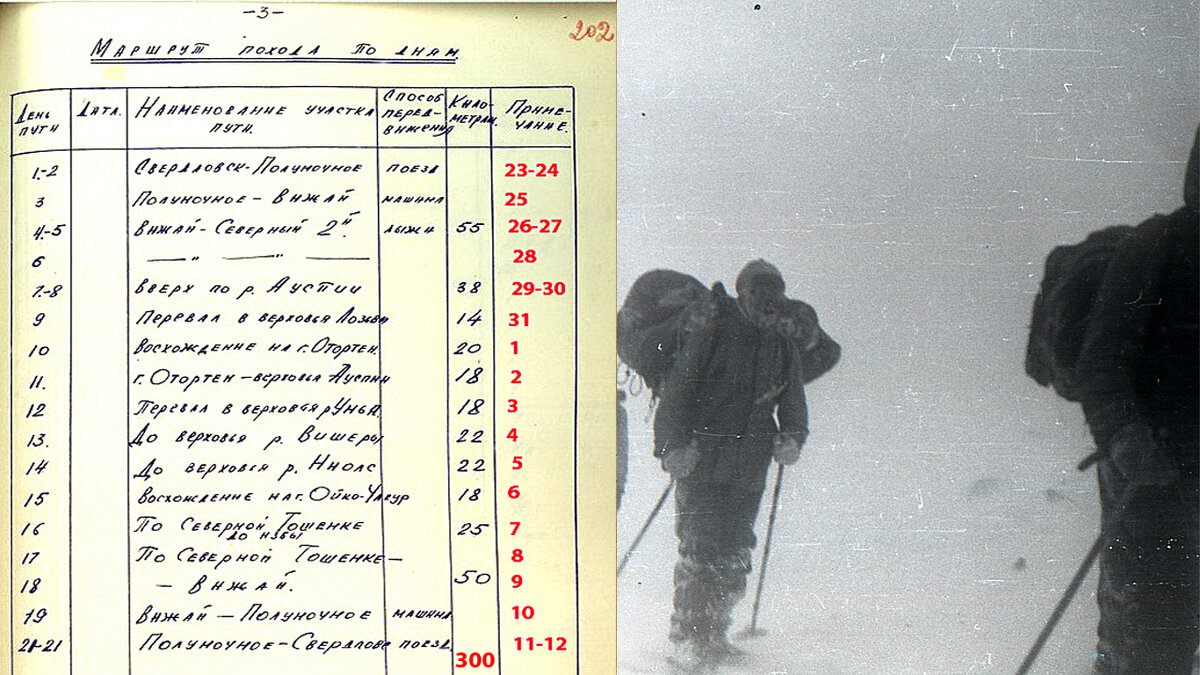 -3-
202
Маршрут похода по дням.
День пути
Дата.
Наименование участка пути.
Способ передвижения
Километраж.
Примечание.
1-2 Свердловск-Полуночное поезд 23-24
3 Полуночное - Вижай машина 25
4-5 Вижай-Северный 2й. лыжи 55 26-27
6 —— " —— " —— 28
7-8 Вверх по р. Ауспии 38 29-30
9 Перевал в верховья Лозьвы 14 31
10 Восхождение на г. Отортен. 20 1
11. г. Отортен - верховья Ауспии 18 2
12 Перевал в верховья р Унья 18 3
13. До верховья р. Вишеры 22 4
14 До верховья р. Ниолс 22 5
15 Восхождение на г. Ойко-Чакур 18 6
16 По Северной Тошемке 25 7
до избы
17 По Северной Тошемке - 8
18 - Вижай. 50 9
19 Вижай - Полуночное машина 10
21-21 Полуночное-Свердловс поезд. 11-12
300